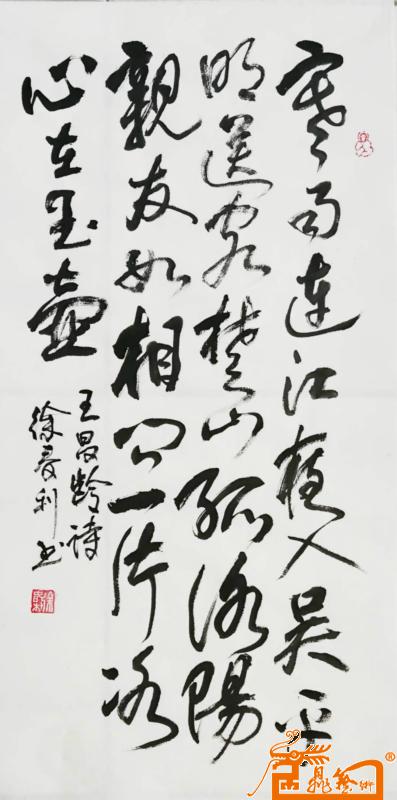 寒雨連江夜入吳平
明送客楚山孤洛陽
親友如相問一片冰
心在玉壺
王昌齡詩
徐春利书